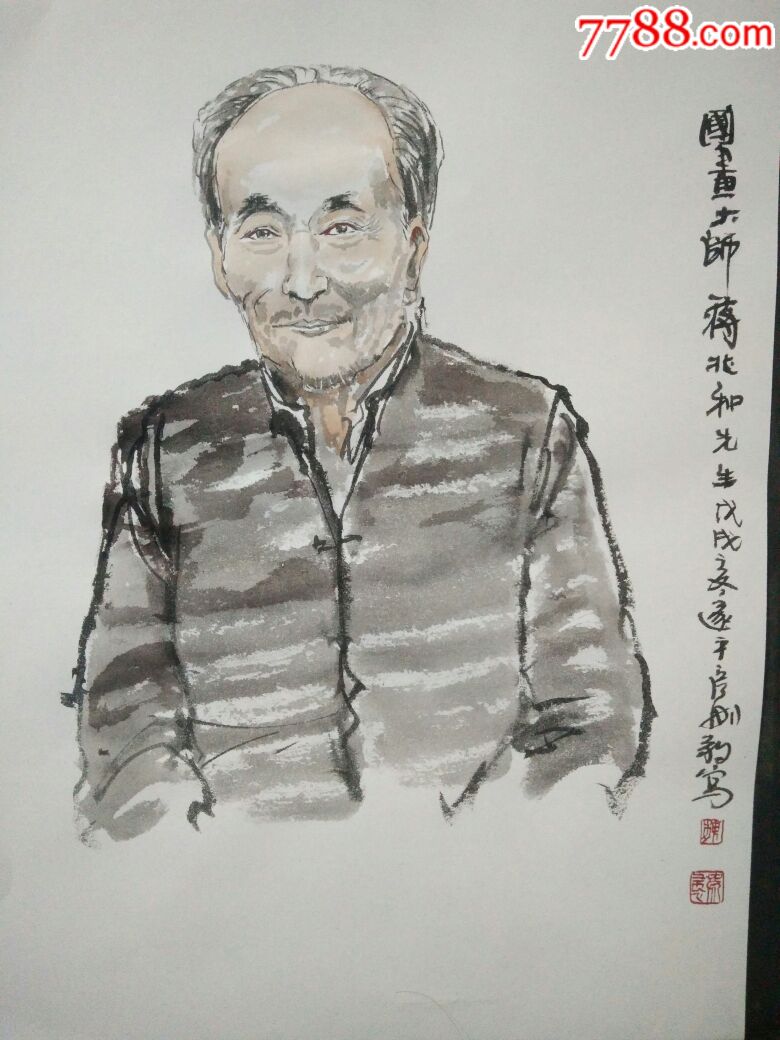 7788.com
國畫大師蔣兆和先生戊戌冬遂平
寫